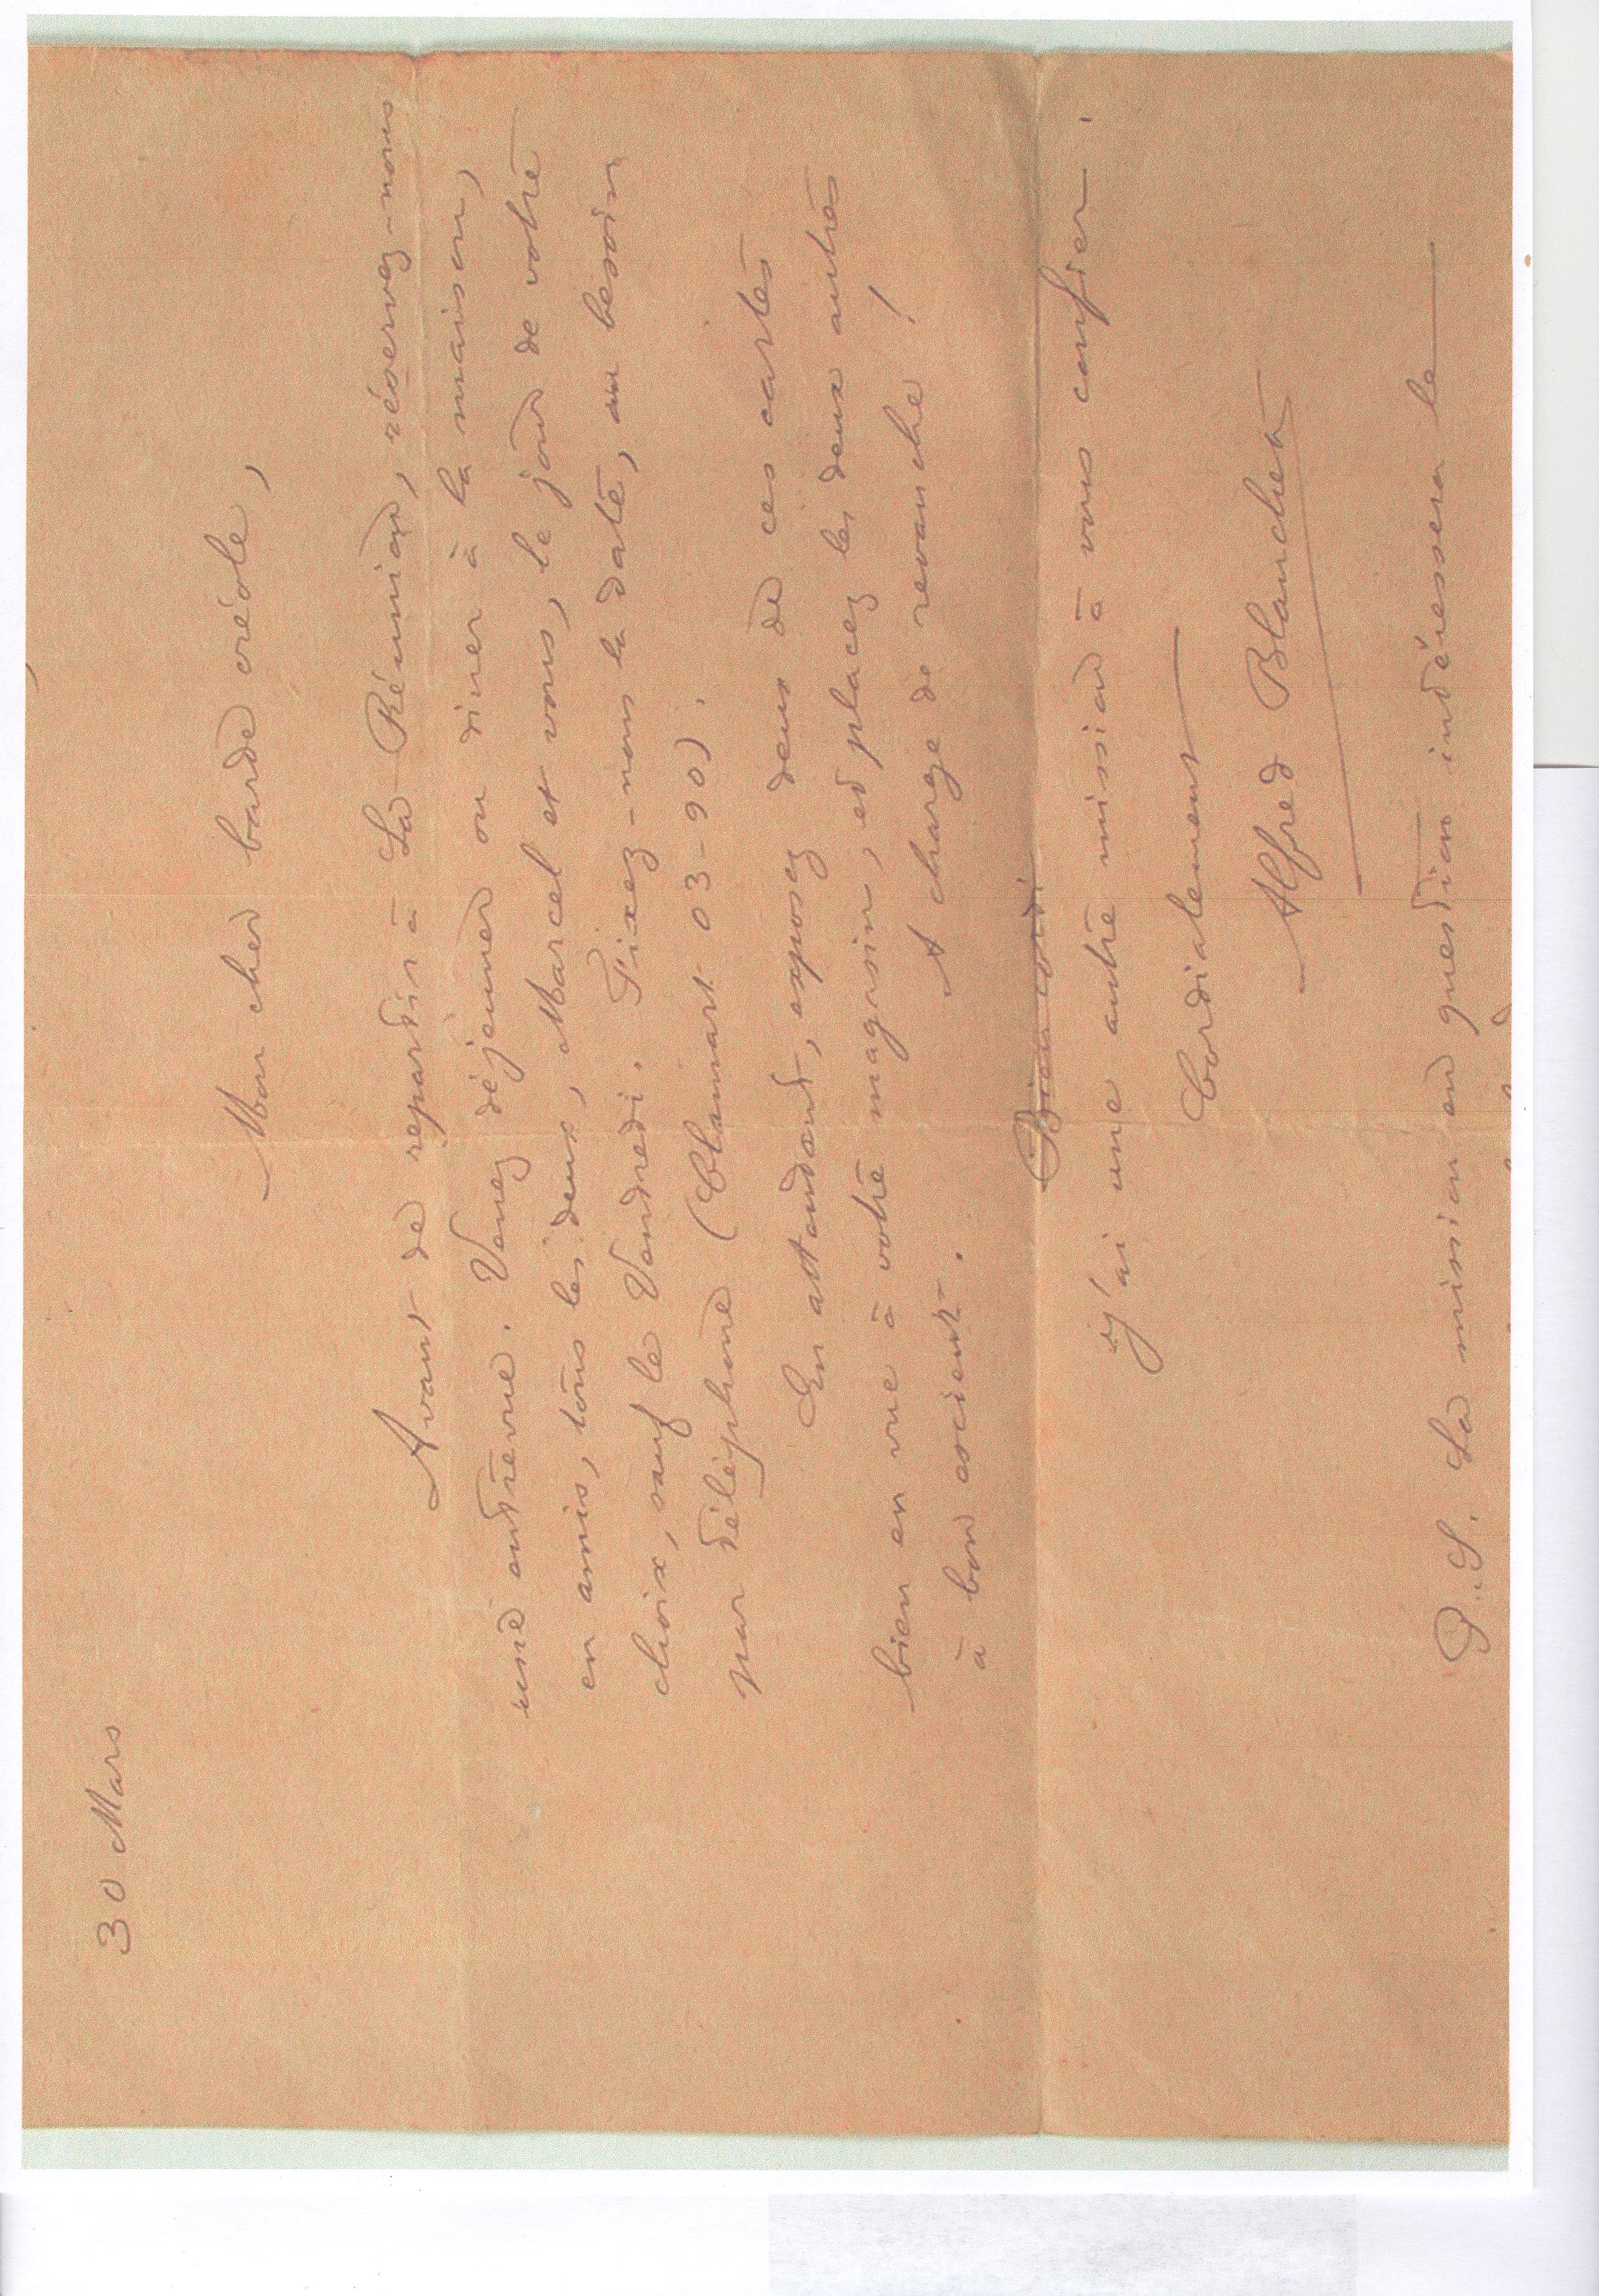 30 Mars
Mon cher barde créole,
Avant de repartir à La Réunion, réservez-nous
une entrevue. Venez déjeuner ou diner à la maison,
en amis, tous les deux, Marcel et vous, le jour de votre
choix, sauf le Vendredi. Fixez-nous la date, au besoin
par téléphone (Clamart 03-90).
En attendant, exposez deux de ces cartes
bien en vue à votre magasin, et placez les deux autres
à bon escient. A charge de revanche !
Bien cordi
j'ai une autre mission à vous confier.
Cordialement
Alfred Blanchet
P.S. La mission en question intéressera le